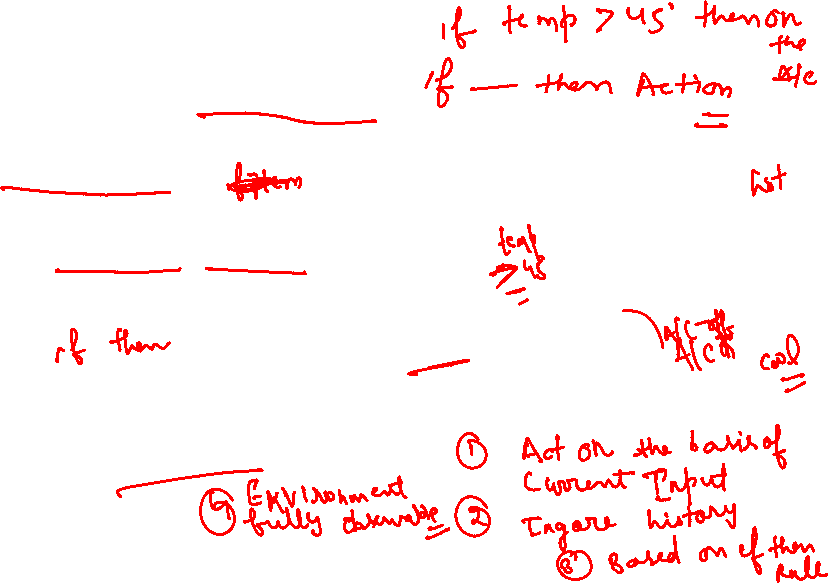 if temp > 45° then on
the
A/c
if — then Action
hot
temp
> 45
if then
A/C off
A/C on
cool
① Act on the basis of
Current Input
② Ingore history
③ Based on if then
Rule
④ Environment
fully observable